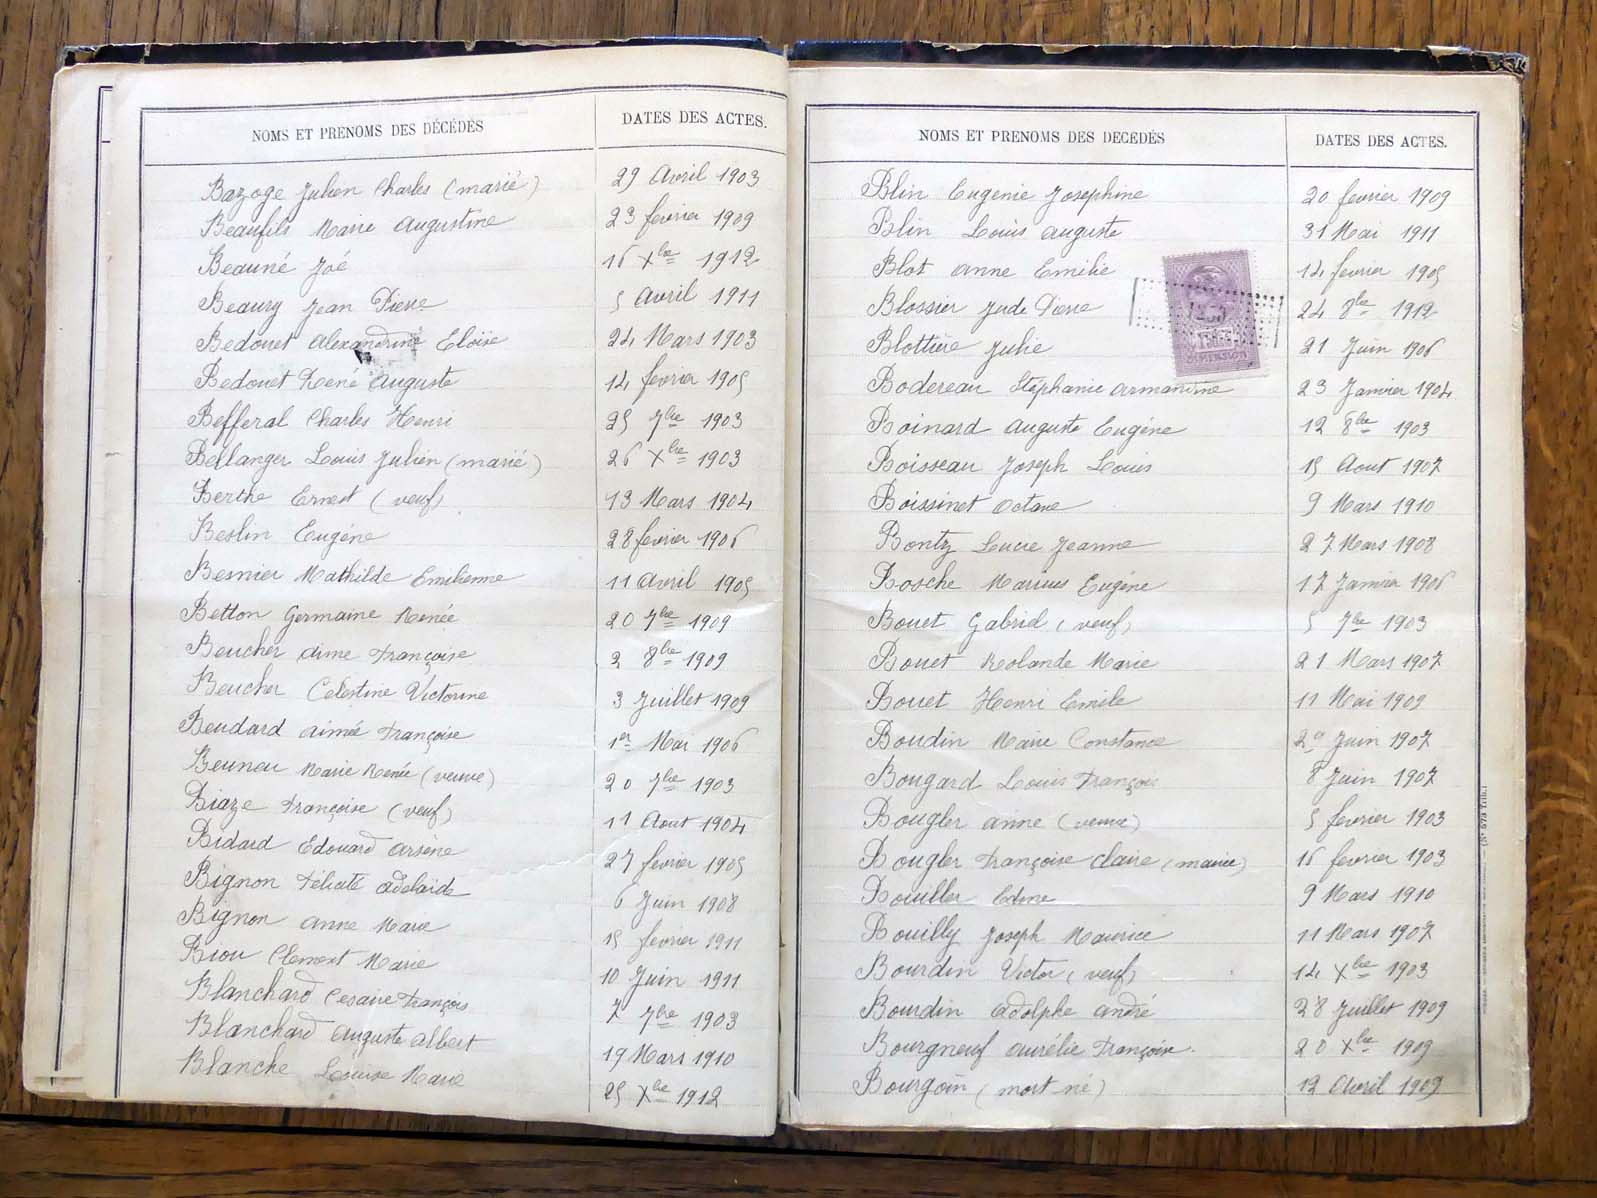 NOMS ET PRENOMS DES DÉCÉDÉS DATES DES ACTES.
Bazoge Julien Charles (marié) 29 Avril 1903
Beaufils Marie Augustine 23 février 1909
Beauné Joé 16 Xbre 1912
Beaury Jean Pierre 5 Avril 1911
Bedouet Alexandrine Eloïse 24 Mars 1903
Bedouet René Auguste 14 février 1905
Befferal Charles Henri 25 7bre 1903
Bellanger Louis Julien (marié) 26 Xbre 1903
Berthe Ernest (veuf) 13 Mars 1904
Beslin Eugène 28 février 1906
Besnier Mathilde Emilienne 11 Avril 1905
Betton Germaine Renée 20 7bre 1909
Beucher Françoise 2 8bre 1909
Beucher Celestine Victorine 3 Juillet 1909
Beudard aimée Françoise 1er Mai 1906
Marie Renée (veuve) 20 7bre 1903
Biaze Françoise (veuf) 11 Aout 1904
Bidard Edouard arsène 27 février 1905
Bignon Félicité adelaïde 6 Juin 1908
Bignon anne Marie 15 février 1911
Biou Clement Marie 10 Juin 1911
Blanchard Cesaire François 7 7bre 1903
Blanchard Auguste albert 19 Mars 1910
Blanche Louise Marie 25 Xbre 1912
NOMS ET PRENOMS DES DECEDÉS DATES DES ACTES.
Blin Eugenie Josephine 20 fevrier 1909
Blin Louis auguste 31 Mai 1911
Blot anne Emilie 14 fevrier 1905
Blossier Jude Pierre 24 8bre 1912
Blottière Julie 21 Juin 1906
DIMENSION
Bodereau Stéphanie armandine 23 Janvier 1904
Boinard auguste Eugène 12 8bre 1903
Boisseau Joseph Louis 15 Aout 1907
Boissinot octave 9 Mars 1910
Bontz Lucie Jeanne 27 Mars 1908
Bosche Marius Eugène 17 Janvier 1906
Bouet Gabriel (veuf) 5 7bre 1903
Bouet Rolande Marie 21 Mars 1907
Bouet Henri Emile 11 Mai 1909
Boudin Marie Constance Juin 1907
Bougard Louis François 8 Juin 1907
Bougler anne (veuve) 5 février 1903
Bougler Françoise Claire (mariée) 16 février 1903
Bouiller Edme 9 Mars 1910
Bouilly Joseph Maurice 11 Mars 1907
Bourdin Victor (veuf) 14 Xbre 1903
Bourdin adolphe andré 28 Juillet 1909
Bourgneuf aurélie Françoise. 20 Xbre 1909
Bourgoin (mort né) 12 Avril 1909